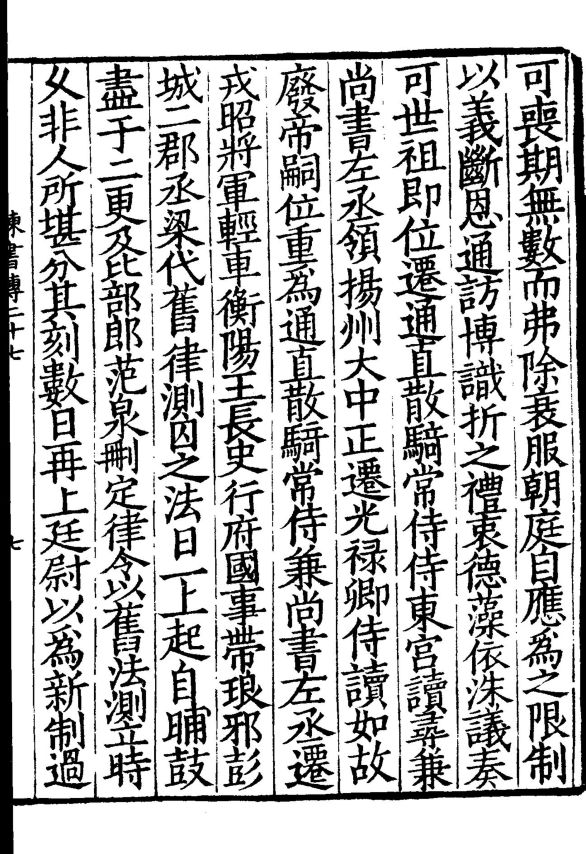 可喪期無數而弗除衰服朝庭自應爲之限制
以義斷恩通訪博識折之禮衷德藻依洙議奏
可世祖即位遷通直散騎常侍侍東宮讀尋兼
尚書左丞領揚州大中正遷光禄卿侍讀如故
廢帝嗣位重爲通直散騎常侍兼尚書左丞遷
戎昭將軍輕車衡陽王長史行府國事帶琅邪彭
城二郡丞梁代舊律測囚之法日一上起自晡鼓
盡于二更及比部郎范泉刪定律令以舊法測立時
久非人所堪分其刻數日再上廷尉以爲新制過
陳書傳二十七
七